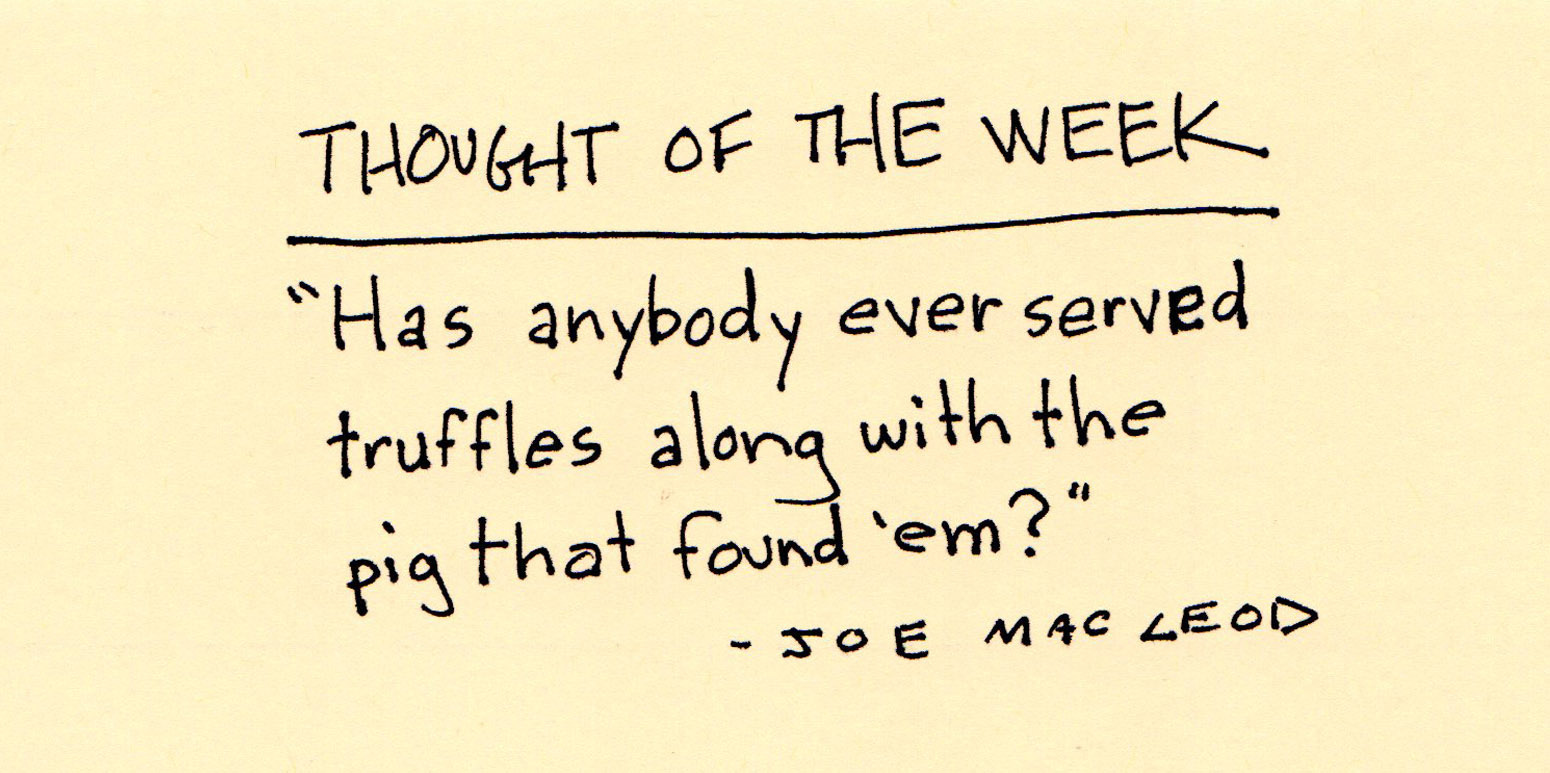 THOUGHT OF THE WEEK
"Has anybody ever served
truffles along with the
pig that found 'em?"
- JOE MAC LEOD